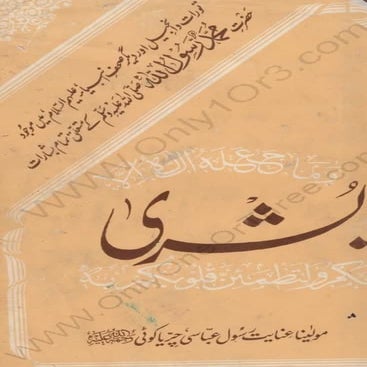 تورات و انجیل اور دیگر صحف انبیاء علیہم السلام میں موجود
حضرت محمد رسول اللہ صلی اللہ علیہ وسلم کے متعلق تمام بشارات
وما جعله الله الا
بشریٰ
لكم ولتطمئن قلوبكم به
مولینا عنایت رسول عباسی چریاکوٹی رحمۃ اللہ علیہ
www.Only1Or3.com
www.OnlyOneOrThree.com